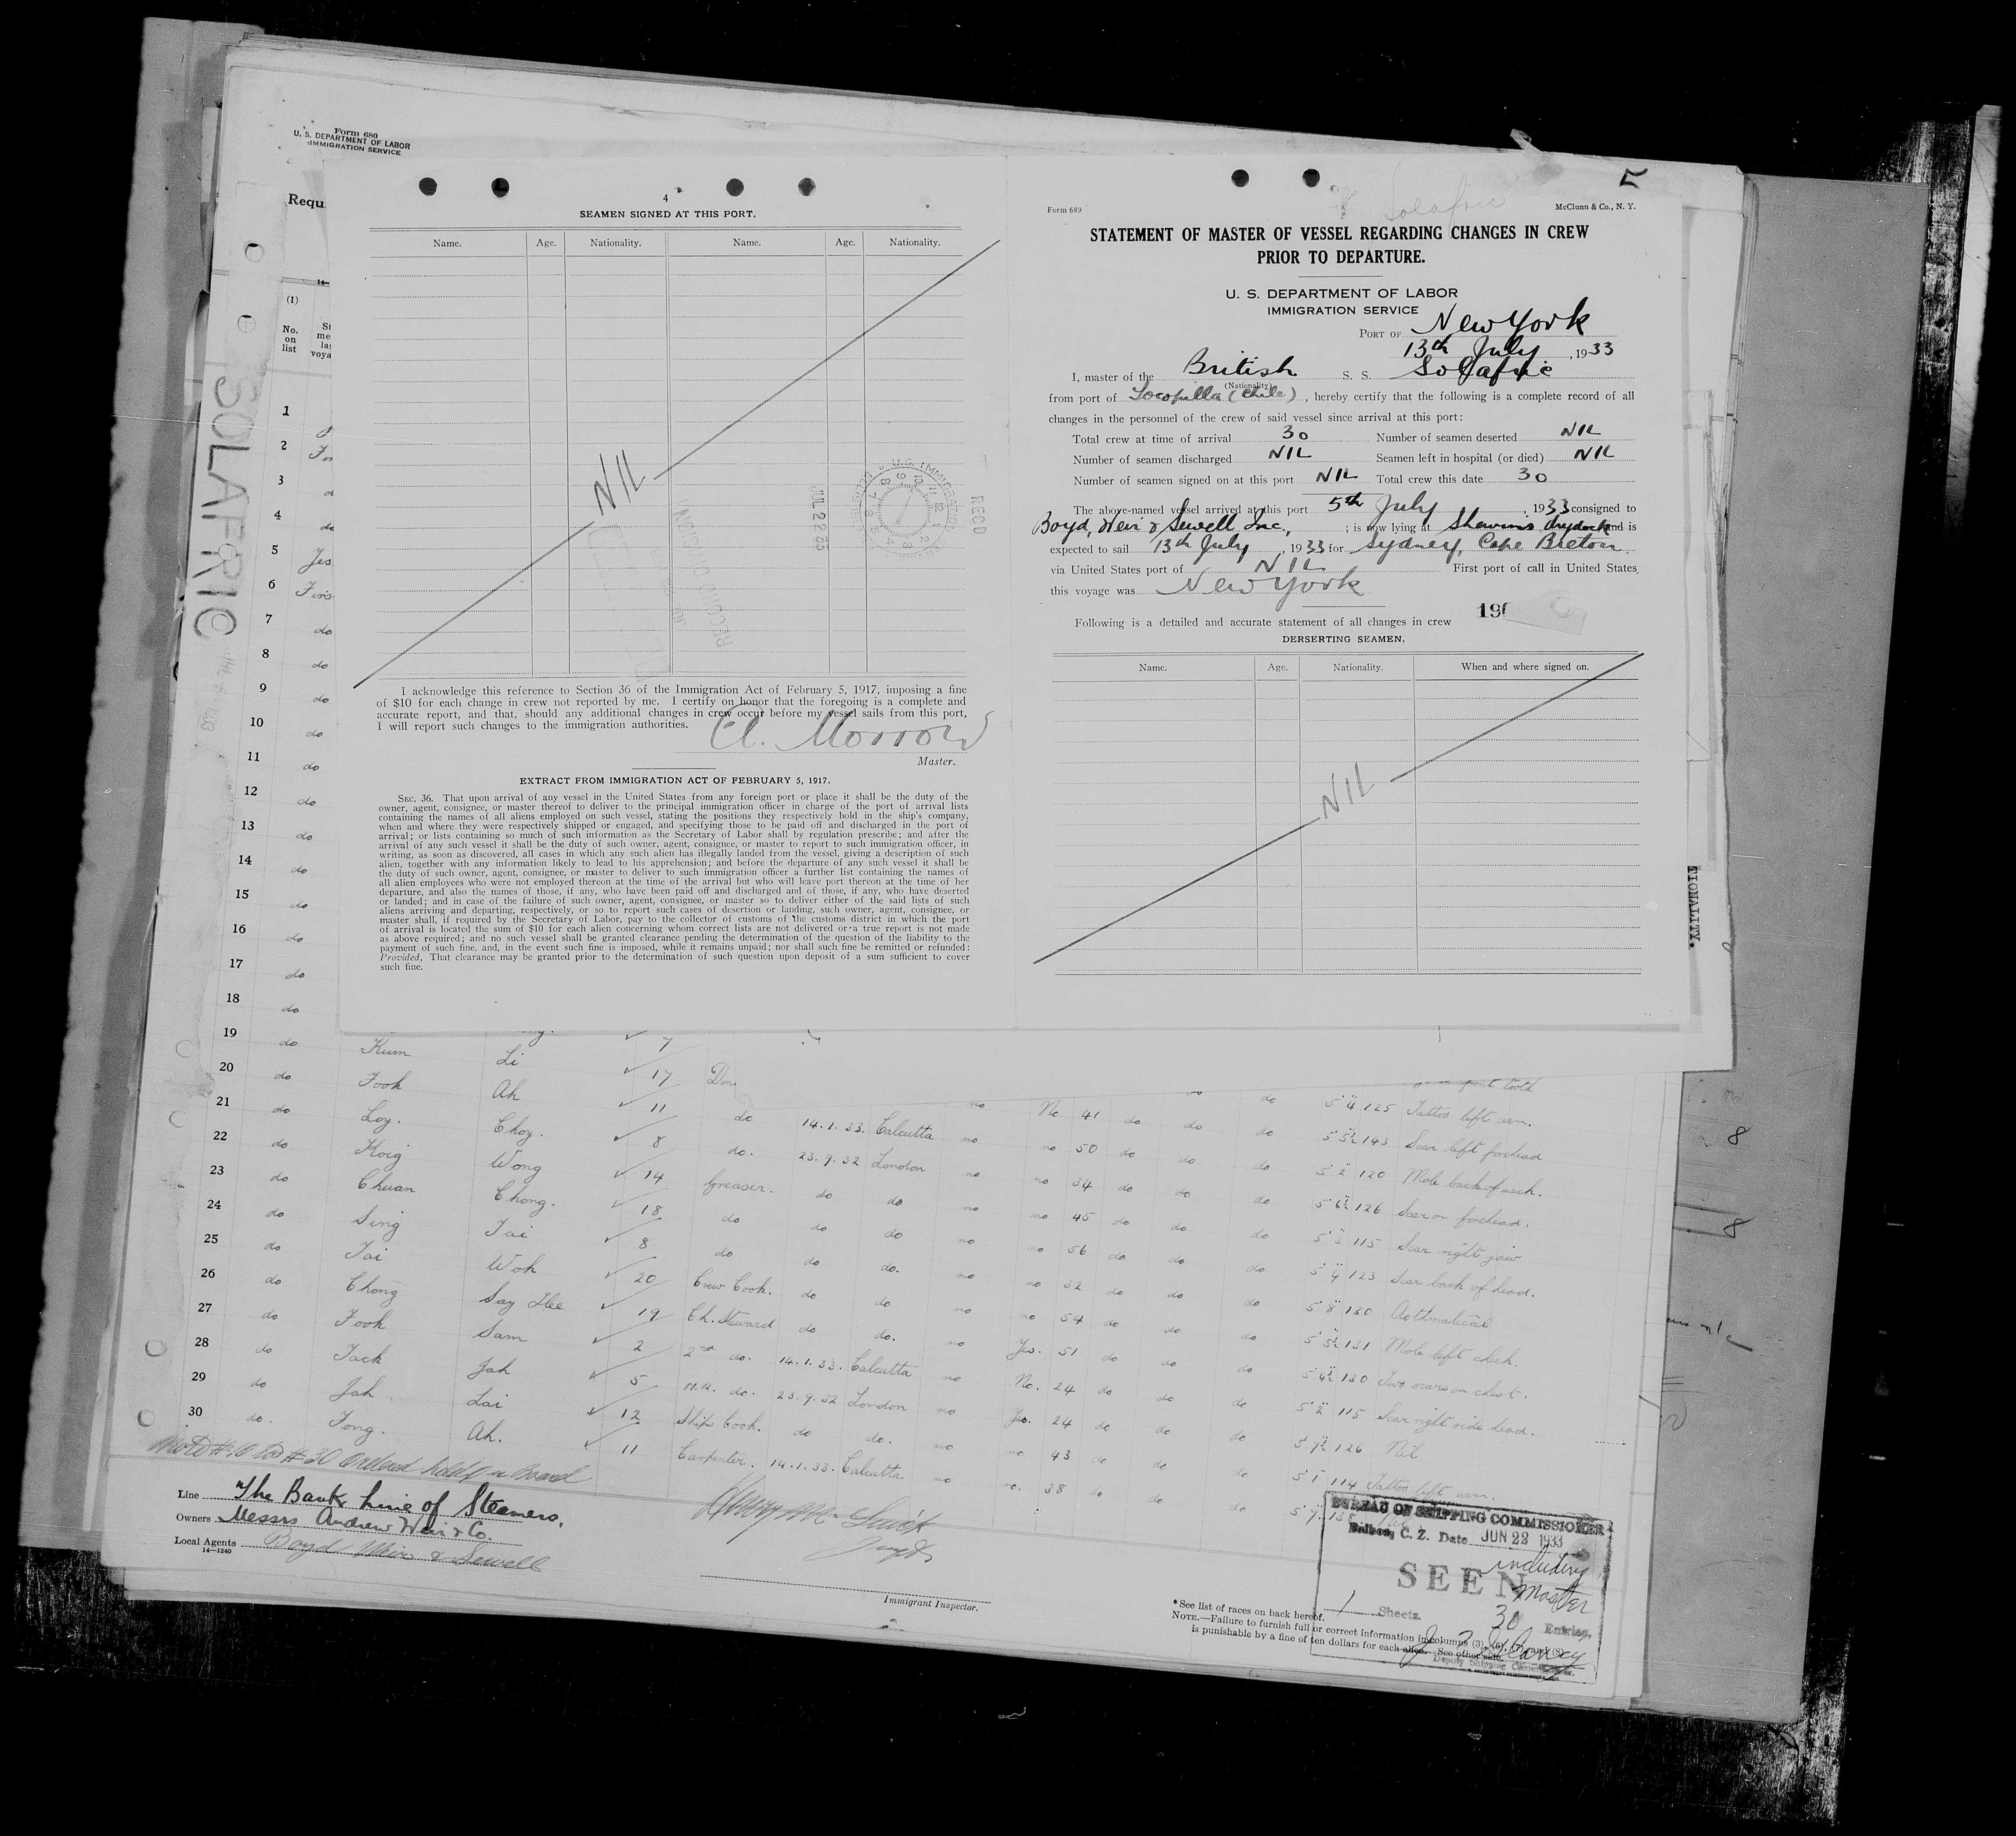 Form 680
U. S. DEPARTMENT OF LABOR
IMMIGRATION SERVICE
Requ
SOLAFRIC
(1)
No. on list
4
SEAMEN SIGNED AT THIS PORT.
Name. Age. Nationality. Name. Age. Nationality.
NIL
JUL 22 33
RECD
RECORD DIVISION
I acknowledge this reference to Section 36 of the Immigration Act of February 5, 1917, imposing a fine
of $10 for each change in crew not reported by me. I certify on honor that the foregoing is a complete and
accurate report, and that, should any additional changes in crew occur before my vessel sails from this port,
I will report such changes to the immigration authorities.
A. Morrow
Master.
EXTRACT FROM IMMIGRATION ACT OF FEBRUARY 5, 1917.
SEC. 36. That upon arrival of any vessel in the United States from any foreign port or place it shall be the duty of the
owner, agent, consignee, or master thereof to deliver to the principal immigration officer in charge of the port of arrival lists
containing the names of all aliens employed on such vessel, stating the positions they respectively hold in the ship's company,
when and where they were respectively shipped or engaged, and specifying those to be paid off and discharged in the port of
arrival; or lists containing so much of such information as the Secretary of Labor shall by regulation prescribe; and after the
arrival of any such vessel it shall be the duty of such owner, agent, consignee, or master to report to such immigration officer, in
writing, as soon as discovered, all cases in which any such alien has illegally landed from the vessel, giving a description of such
alien, together with any information likely to lead to his apprehension; and before the departure of any such vessel it shall be
the duty of such owner, agent, consignee, or master to deliver to such immigration officer a further list containing the names of
all alien employees who were not employed thereon at the time of the arrival but who will leave port thereon at the time of her
departure, and also the names of those, if any, who have been paid off and discharged and of those, if any, who have deserted
or landed; and in case of the failure of such owner, agent, consignee, or master so to deliver either of the said lists of such
aliens arriving and departing, respectively, or so to report such cases of desertion or landing, such owner, agent, consignee, or
master shall, if required by the Secretary of Labor, pay to the collector of customs of the customs district in which the port
of arrival is located the sum of $10 for each alien concerning whom correct lists are not delivered or a true report is not made
as above required; and no such vessel shall be granted clearance pending the determination of the question of the liability to the
payment of such fine, and, in the event such fine is imposed, while it remains unpaid; nor shall such fine be remitted or refunded:
Provided, That clearance may be granted prior to the determination of such question upon deposit of a sum sufficient to cover
such fine.
5
Solafric
Form 689 McClunn & Co., N. Y.
STATEMENT OF MASTER OF VESSEL REGARDING CHANGES IN CREW
PRIOR TO DEPARTURE.
U. S. DEPARTMENT OF LABOR
IMMIGRATION SERVICE
PORT OF New York
13th July, 1933
I, master of the British S. S. Solafric
(Nationality)
from port of Tocopilla (Chile), hereby certify that the following is a complete record of all
changes in the personnel of the crew of said vessel since arrival at this port:
Total crew at time of arrival 30 Number of seamen deserted NIL
Number of seamen discharged NIL Seamen left in hospital (or died) NIL
Number of seamen signed on at this port NIL Total crew this date 30
The above-named vessel arrived at this port 5th July, 1933 consigned to
Boyd, Weir & Sewell Inc, ; is now lying at drydock and is
expected to sail 13th July, 1933 for Sydney, Cape Breton
via United States port of NIL First port of call in United States
this voyage was New York
Following is a detailed and accurate statement of all changes in crew
DERSERTING SEAMEN.
Name. Age. Nationality. When and where signed on.
NIL
TIONALITY.
1
2
3
4
5 Yes
6
7 do
8 do
9 do
10 do
11 do
12 do
13 do
14 do
15 do
16 do
17 do
18 do
19 do Kum Li 7
20 do Fook Ah 17
21 do Loy. Choy. 11 do 14.1.33. Calcutta no No 41 do do do 5 4 125 Tattoo left arm.
22 do Koig Wong 8 do. 23.9.32 London no no 50 do do do 5 5½ 143 Scar left forehead
23 do Chuan Chong. 14 Greaser. do do no no 34 do do do 5 2 120 Mole back of neck.
24 do Sing Tai 18 do do do no no 45 do do do 5 6½ 126 Scar on forehead.
25 do Tai Woh 8 do do do. no no 56 do do do 5 3 115 Scar right jaw
26 do Chong Say Hee 20 Crew Cook. do do no no 32 do do do 5 4 123 Scar back of head.
27 do Fook Sam 19 Ch. Steward do do. no no 54 do do do 5 8 130 Asthmatical
28 do Tack Jah 2 2nd do. 14.1.33. Calcutta no Yes. 51 do do do 5 5½ 131 Mole left cheek.
29 do Jah Lai 5 M.R. do. 23.9.32 London no No. 24 do do do 5 4½ 130 Two scars on chest.
30 do. Tong. Ah. 12 Ships Cook. do do. no Yes. 24 do do do 5 2 115 Scar right side head.
11 Carpenter. 14.1.33. Calcutta no no 43 do do do 5 7½ 126 Nil
no. 38 do do do 5 1 114 Tattoo left arm.
#30 ordered held on Board
Line The Bank Line of Steamers.
Owners Messrs Andrew Weir & Co.
Local Agents Boyd Weir & Sewell
14—1240
Immigrant Inspector.
* See list of races on back hereof.
NOTE.—Failure to furnish full or correct information in columns (3), (6), (7) and (8)
is punishable by a fine of ten dollars for each alien. See other side.
BUREAU OF SHIPPING COMMISSIONER
Balboa, C. Z. Date JUN 22 1933
SEEN
including
Master
1 Sheets. 30 Entries.
Deputy Shipping Commissioner.
8
8